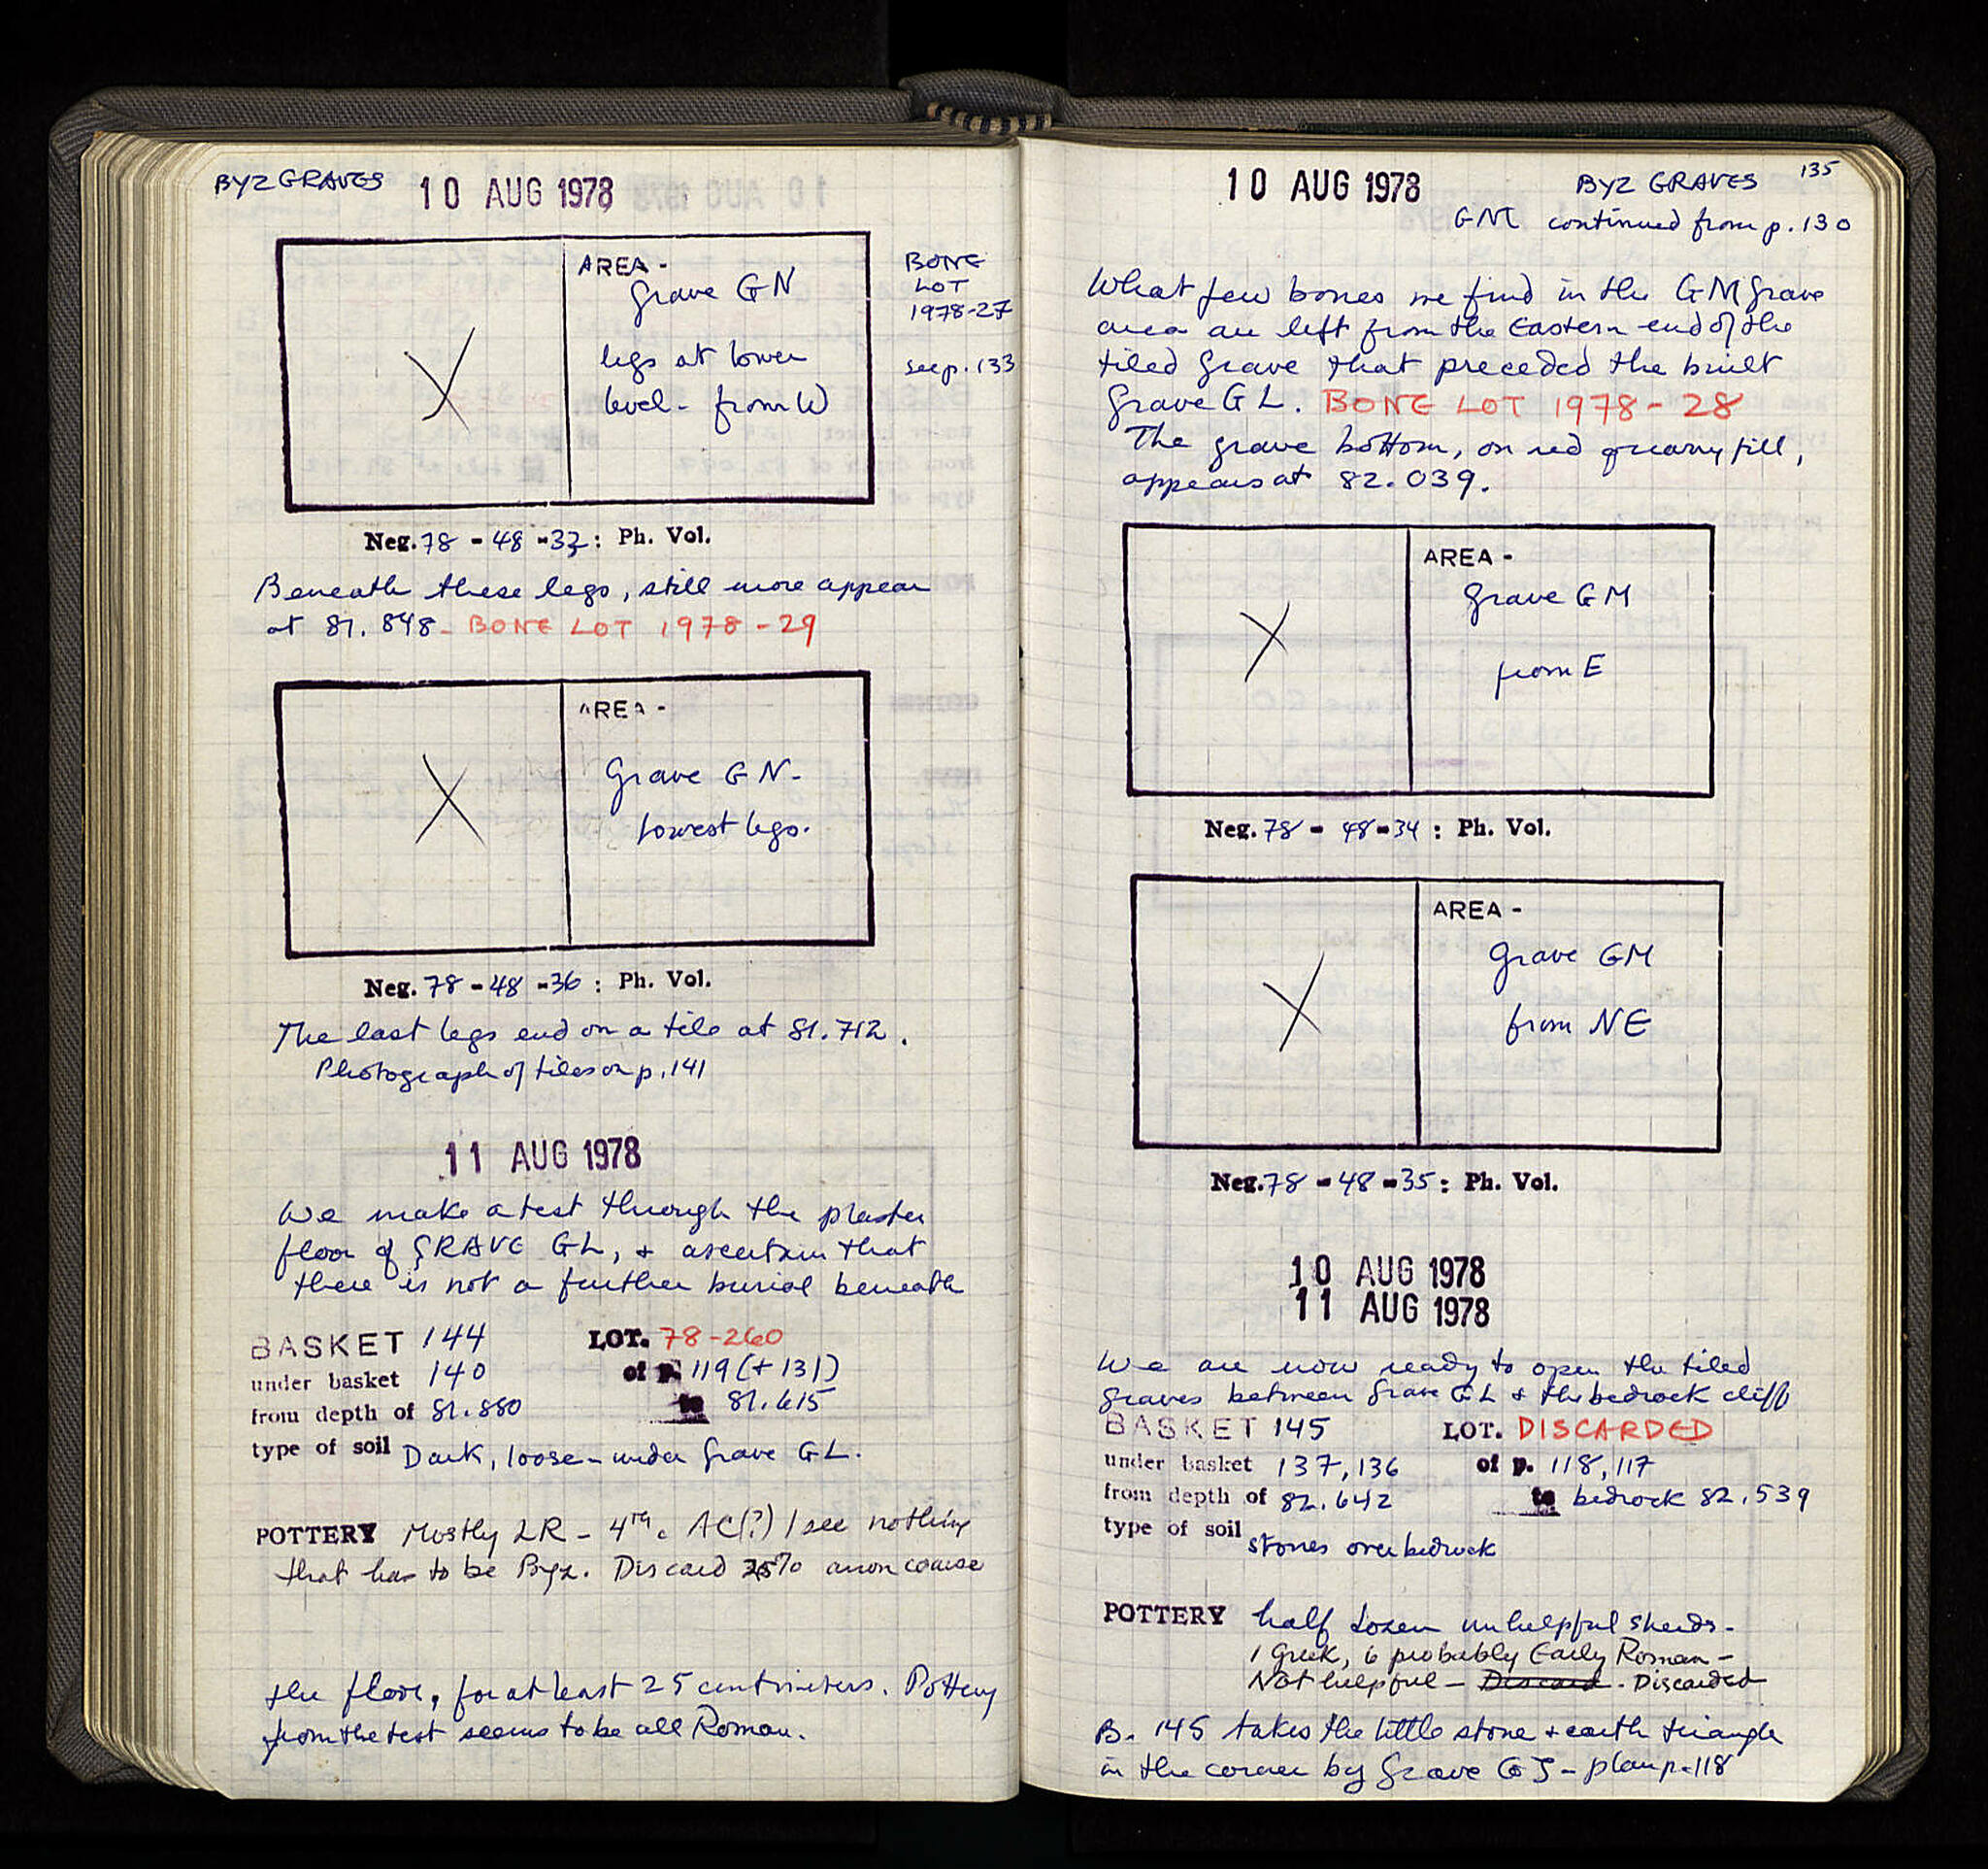 BYZ GRAVES
10 AUG 1978
AREA -
Grave GN
legs at lower
level - from W
BONE
LOT
1978-27
see p. 133
Neg. 78 - 48 - 33 : Ph. Vol.
Beneath these legs, still more appear
at 81.848 - BONE LOT 1978-29
AREA -
Grave GN -
lowest legs.
Neg. 78 - 48 - 36 : Ph. Vol.
The last legs end on a tile at 81.712.
Photograph of tiles on p. 141
11 AUG 1978
We make a test through the plaster
floor of GRAVE GL, + ascertain that
there is not a further burial beneath
BASKET 144 LOT. 78-260
under basket 140 of p. 119 (+ 131)
from depth of 81.880 to 81.615
type of soil Dark, loose - under Grave GL.
POTTERY Mostly LR - 4th c. AC(?) I see nothing
that has to be Byz. Discard % anon coarse
the floor, for at least 25 centimeters. Pottery
from the test seems to be all Roman.
135
10 AUG 1978
BYZ GRAVES
GM continued from p. 130
What few bones we find in the GM grave
area are left from the Eastern end of the
tiled grave that preceded the built
Grave GL. BONE LOT 1978-28
The grave bottom, on red quarry fill,
appears at 82.039.
AREA -
Grave GM
from E
Neg. 78 - 48 - 34 : Ph. Vol.
AREA -
Grave GM
from NE
Neg. 78 - 48 - 35 : Ph. Vol.
10 AUG 1978
11 AUG 1978
We are now ready to open the tiled
graves between Grave GL + the bedrock cliff
BASKET 145 LOT. DISCARDED
under basket 137, 136 of p. 118, 117
from depth of 82.642 to bedrock 82.539
type of soil stones over bedrock
POTTERY half dozen unhelpful sherds -
1 Greek, 6 probably Early Roman -
Not helpful - Discard. Discarded
B. 145 takes the little stone + earth triangle
in the corner by Grave GJ - plan p. 118